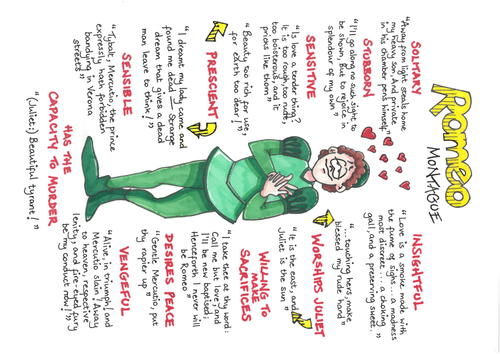 Romeo
MONTAGUE
SOLITARY
"Away from light steals home
my heavy son. And private
in his chamber pens himself"
STUBBORN
"I'll go along no such sight to
be shown, But to rejoice in
splendour of my own"
SENSITIVE
"Is love a tender thing?
it is too rough, too rude,
too boisterous, and it
pricks like thorn"
"Beauty too rich for use,
for earth too dear!"
PRESCIENT
"I dreamt my lady came and
found me dead — strange
dream that gives a dead
man leave to think!"
SENSIBLE
"Tybalt, Mercutio, the prince
expressly hath forbidden
bandying in Verona
streets"
HAS THE
CAPACITY TO MURDER
"(Juliet:) Beautiful tyrant!"
INSIGHTFUL
"Love is a smoke made with
the fume of sighs... a madness
most discreet... a choking
gall, and a preserving sweet."
"...touching hers, make
blessed my rude hand"
WORSHIPS JULIET
"It is the east, and
Juliet is the sun"
WILLING TO
MAKE
SACRIFICES
"I take thee at thy word:
Call me but love, and
I'll be new baptised;
Henceforth I never will
be Romeo"
DESIRES PEACE
"Gentle Mercutio, put
thy rapier up"
VENGEFUL
"Alive, in triumph! and
Mercutio slain! Away
to heaven, respective
lenity, and fire-eyed fury
be my conduct now!"